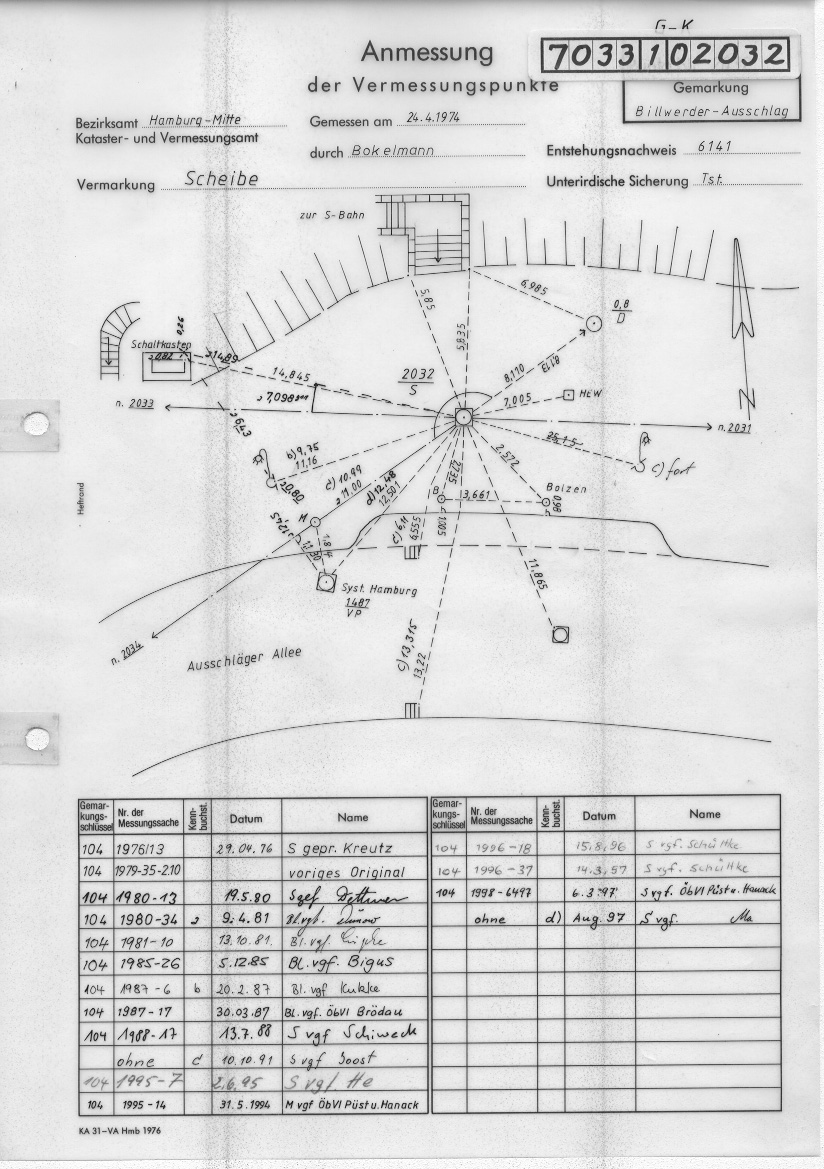 G-K
Anmessung
7033102032
der Vermessungspunkte
Gemarkung
Billwerder-Ausschlag
Bezirksamt Hamburg-Mitte
Kataster- und Vermessungsamt
Gemessen am 24.4.1974
durch Bokelmann
Entstehungsnachweis 6141
Vermarkung Scheibe
Unterirdische Sicherung Tst.
zur S-Bahn
6,985
5,85
5,835
0,8
D
0,26
Schaltkasten
0,82
14,89
14,845
2032
S
8,110
8,113
7,005
HEW
n. 2033
7,098
n. 2031
6,43
b) 9,75
11,16
c) 10,99
11,00
d) 12,48
12,501
2,572
25,15
c) fort
0,80
B
3,661
Bolzen
0,98
Heftrand
M
12,45
12,30
c) 6,11
6,555
1,005
11,865
Syst. Hamburg
1487
VP
n. 2034
Ausschläger Allee
c) 13,315
13,22
Gemar-kungs-schlüssel Nr. der Messungssache Kenn-buchst. Datum Name
104 1976/13 29.04.76 S gepr. Kreutz
104 1979-35-2.10 voriges Original
104 1980-13 19.5.80
104 1980-34 a 9.4.81 Bl.vgf.
104 1981-10 13.10.81. Bl. vgf.
104 1985-26 5.12.85 Bl. vgf. Bigus
104 1987-6 b 20.2.87 Bl. vgf
104 1987-17 30.03.87 Bl. vgf. ÖbVI Brödau
104 1988-17 13.7.88 S vgf Schiweck
ohne c 10.10.91 S vgf Joost
104 1995-7 2.6.95 S vgf He
104 1995-14 31.5.1994 M vgf ÖbVI Püst u. Hanack
Gemar-kungs-schlüssel Nr. der Messungssache Kenn-buchst. Datum Name
104 1996-18 15.8.96 S vgf. Schüttke
104 1996-37 14.3.97 S vgf. Schüttke
104 1998-6497 6.3.97 S vgf. ÖbVI Püst u. Hanack
ohne d) Aug. 97 S vgf. Ma
KA 31-VA Hmb 1976